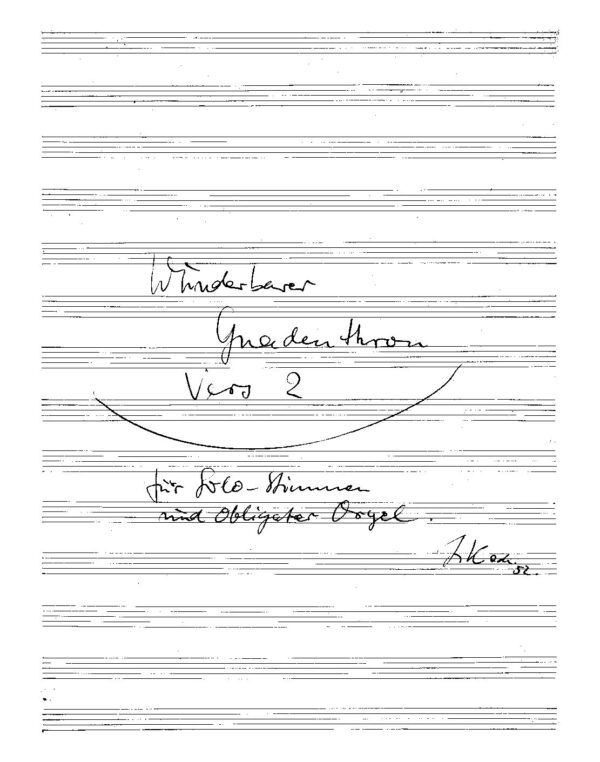 Wunderbarer
Gnadenthron
Vers 2
für Solo-Stimmen
und Obligater Orgel.
52.